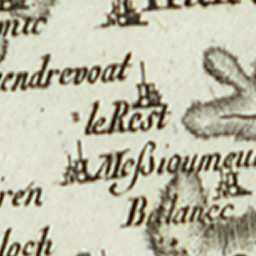 mic
endrevoat
le Rest
Meßioumeu
ren
Balanec
loch